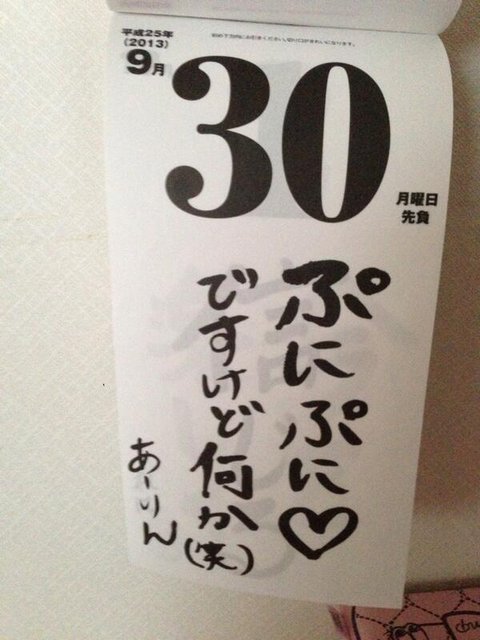 平成25年
(2013)
9月
30
月曜日
先負
ぷにぷに♡
ですけど何か(笑)
あーりん